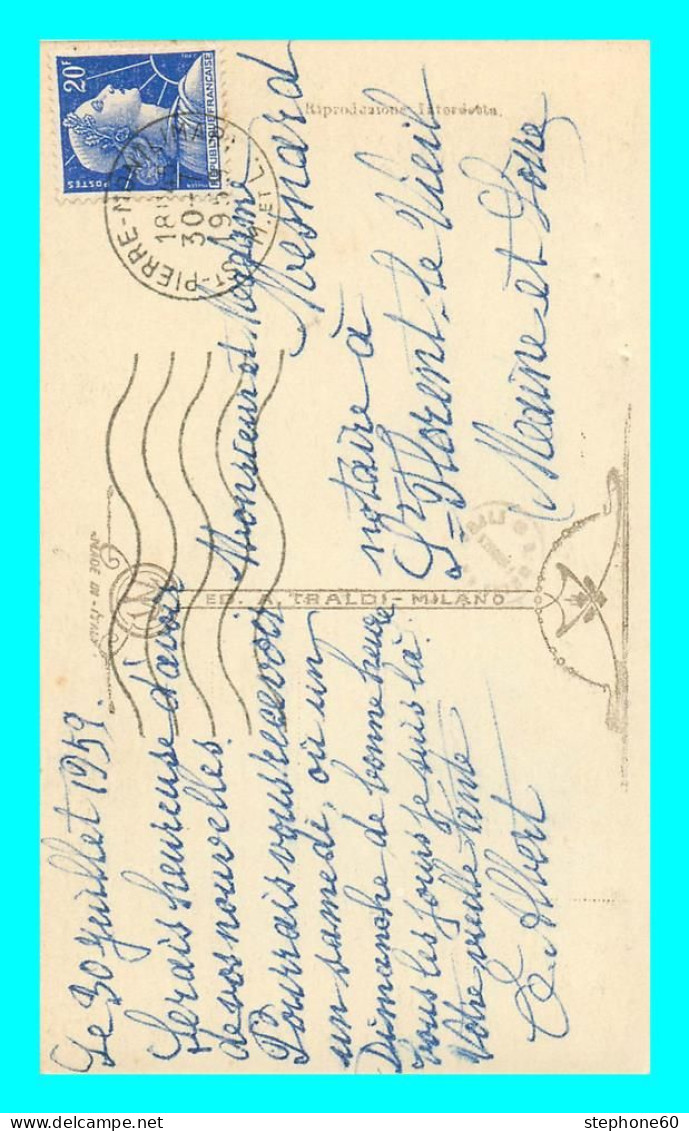 Le 30 juillet 1959.
Serais heureuse d'avoir
de vos nouvelles.
Pourrais vous recevoir
un samedi, où un
Dimanche de bonne heure
tous les jours je suis là.
Votre vieille tante
E. Albert
20F
REPUBLIQUE FRANÇAISE
POSTES
ST-PIERRE-MONTLIMART
M. ET L.
18H
30-7
1959
Riproduzione Interdetta
Monsieur et Madame
Mesnard
notaire à
St Florent-le Vieil
Maine et Loire
ED. A. TRALDI - MILANO
MADE IN ITALY
stephone60